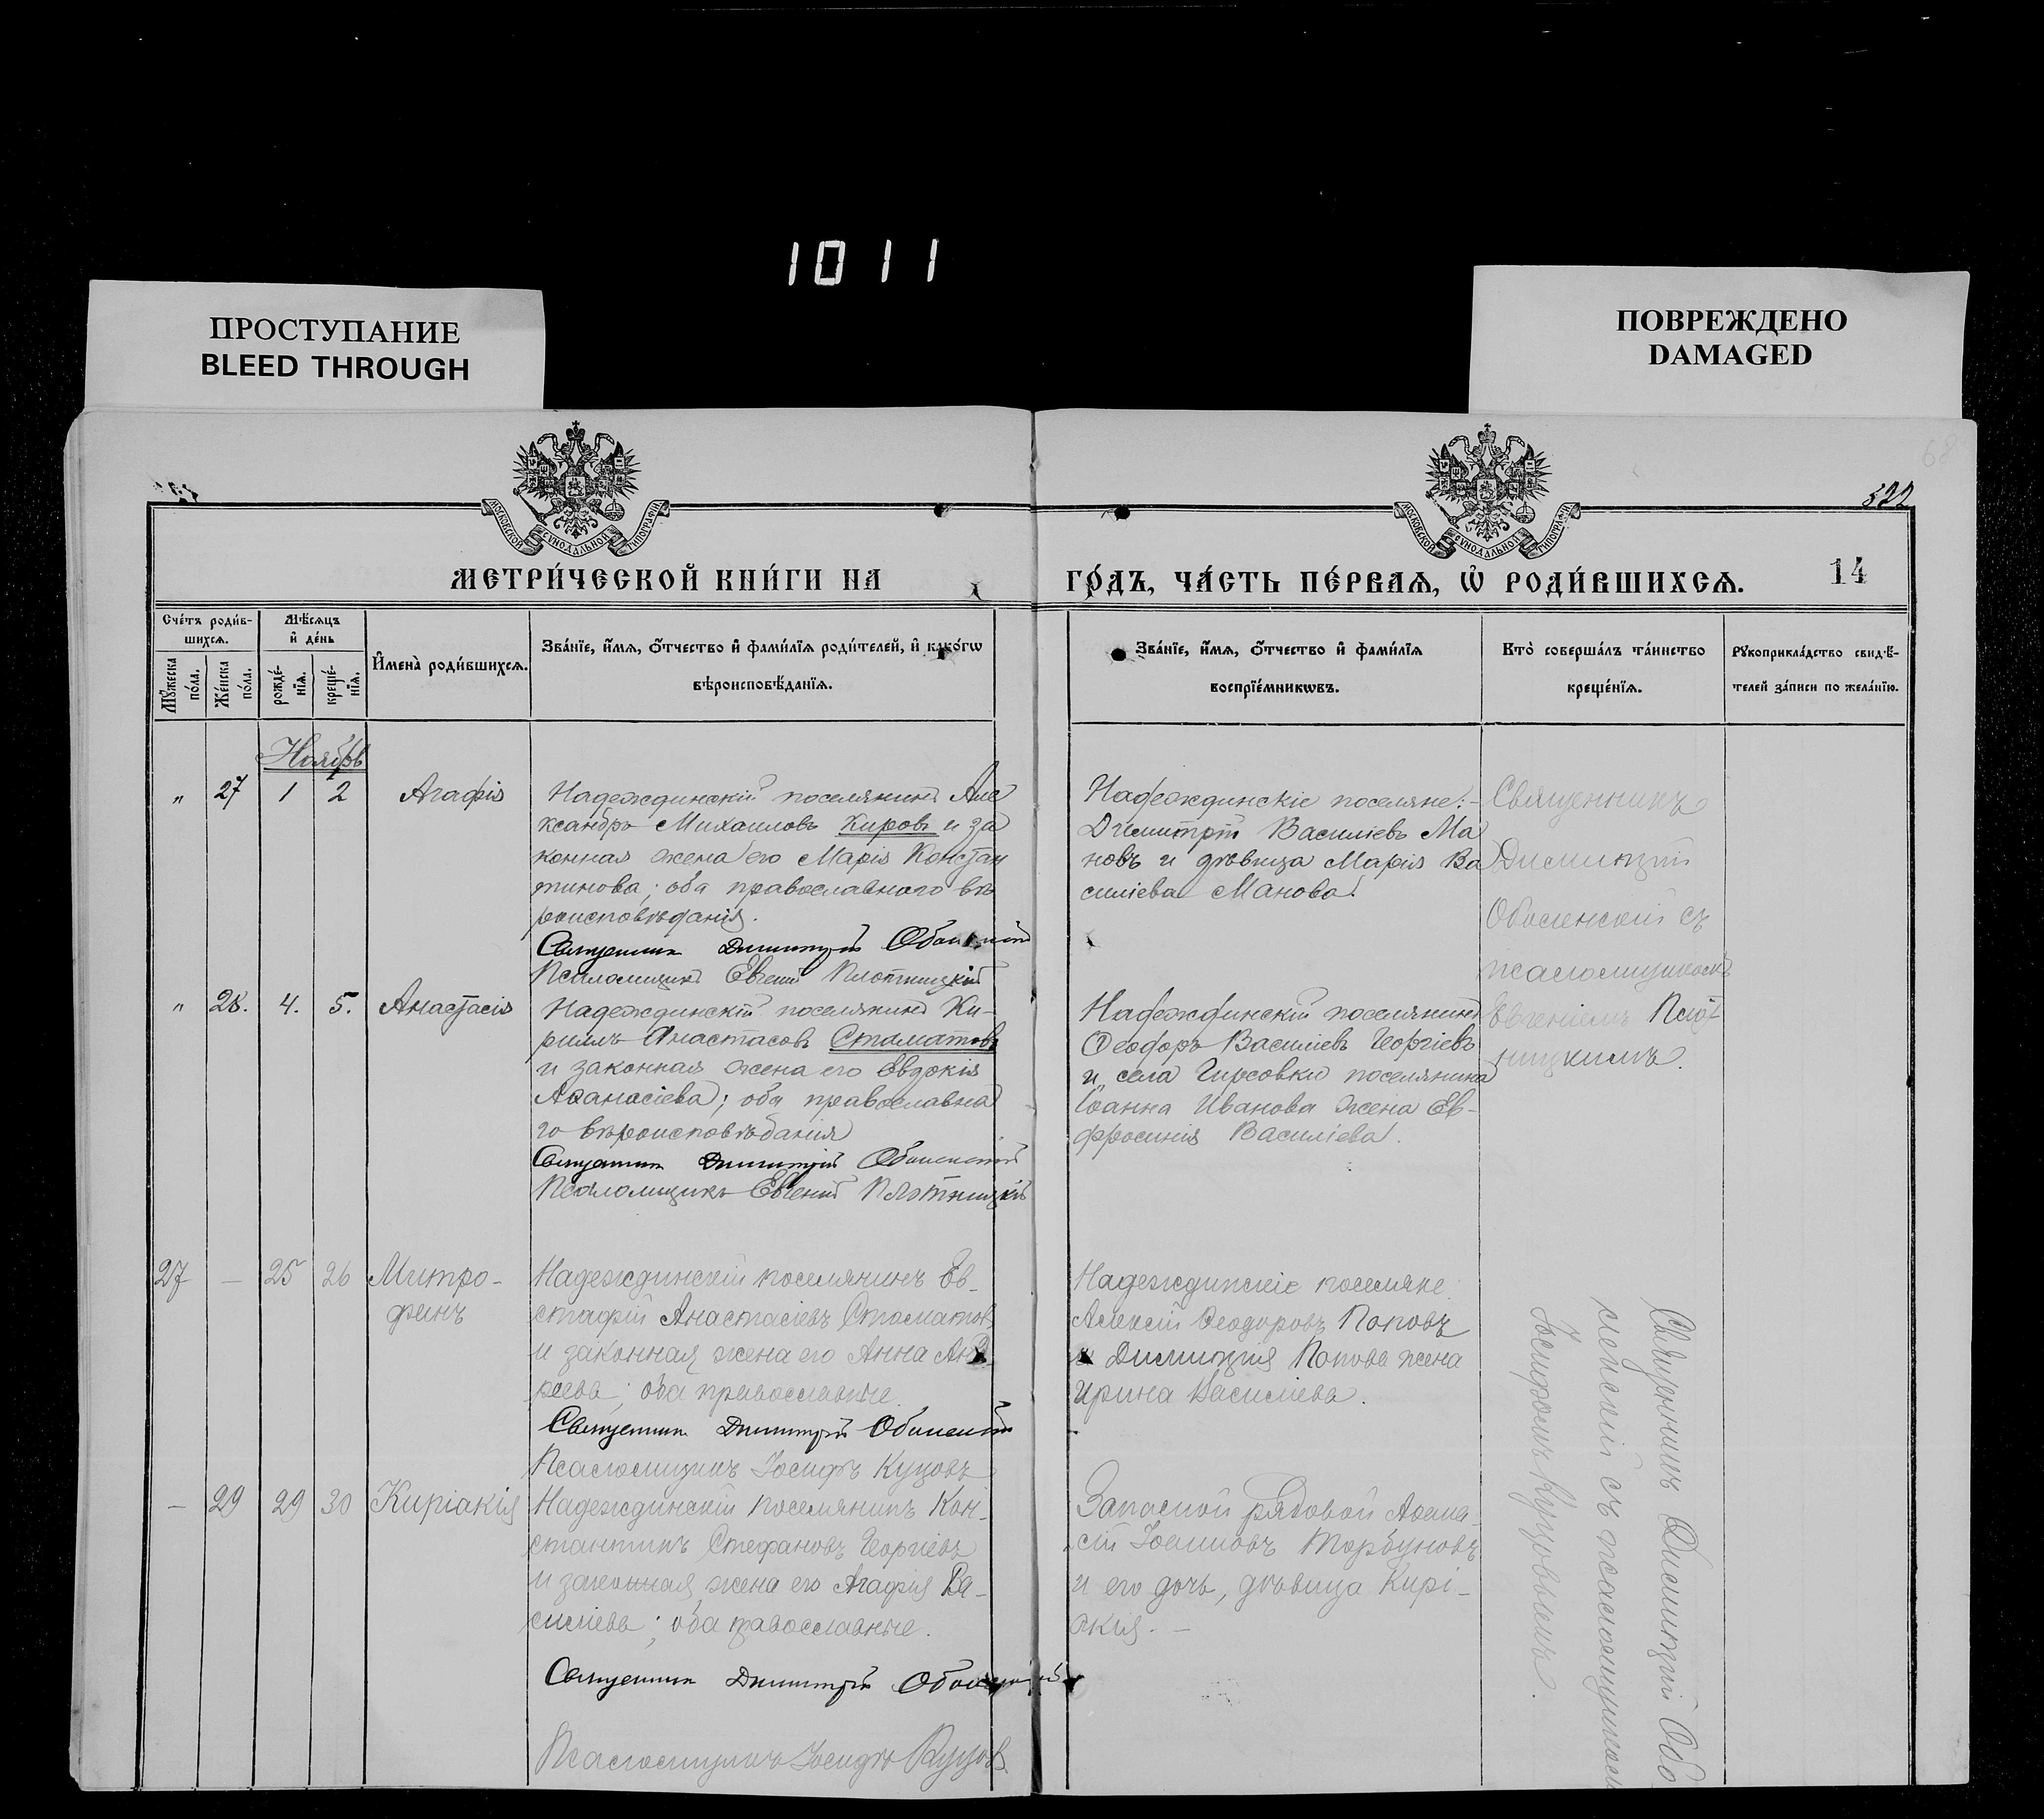 1011
ПРОСТУПАНИЕ
BLEED THROUGH
ПОВРЕЖДЕНО
DAMAGED
68
522
МОСКОВСКОЙ СѴНОДАЛЬНОЙ ТИПОГРАФІИ
МОСКОВСКОЙ СѴНОДАЛЬНОЙ ТИПОГРАФІИ
МЕТРИ́ЧЕСКОЙ КНИ́ГИ НА
ГО́ДЪ, ЧА́СТЬ ПЕ́РВАѦ, Ѡ҆ РОДИ́ВШИХСѦ.
14
Сче́тъ роди́в-
шихсѧ.
Мꙋ́жеска по́ла.
Же́нска по́ла.
Мѣ́сѧцъ
и҆ де́нь
рожде́-
нїѧ.
креще́-
нїѧ.
И҆мена̀ роди́вшихсѧ.
Зва́нїе, и҆́мѧ, ѻ҆́тчество и҆ фами́лїѧ роди́телей, и҆ како́гѡ
вѣроисповѣ́данїѧ.
Зва́нїе, и҆́мѧ, ѻ҆́тчество и҆ фами́лїѧ
воспрїе́мникѡвъ.
Кто̀ соверша́лъ та́инство
креще́нїѧ.
Рꙋкоприкла́дство свидѣ́-
телей за́писи по жела́нїю.
Ноябрь
„ 27 1 2 Агафія
Надеждинскій поселянинъ Але
ксандръ Михаиловъ Кировъ и за
конная жена его Марія Констан
тинова; оба православного вѣ
роисповѣданія.
Священник Димитрій Оболенскій
Псаломщикъ Евгеній Плотницкій
Надеждинскіе поселяне:-
Димитрій Василіевъ Ма
новъ и дѣвица Марія Ва
силіева Манова.
Священникъ
Димитрій
Оболенскій съ
псаломщикомъ
Евгеніемъ Плот
ницкимъ.
„ 28. 4. 5. Анастасія
Надеждинскій поселянинъ Ки-
риллъ Анастасовъ Стаматовъ
и законная жена его Евдокія
Аѳанасіева; оба православна
го вѣроисповѣданія
Священник Димитрій Оболенскій
Псаломщикъ Евгеній Плотницкій
Надеждинскій поселянинъ
Ѳеодоръ Василіевъ Георгіевъ
и села Гирсовки поселянина
Іоанна Иванова жена Ев-
фросинія Василіева.
27 — 25 26 Митро-
фанъ
Надеждинскій поселянинъ Ев-
стафій Анастасіевъ Стоматов
и законная жена его Анна Анд
реева; оба православные.
Священник Димитрій Оболенскій
Псаломщикъ Іосифъ Куцовъ
Надеждинскіе поселяне
Алексій Ѳеодоровъ Поповъ
и Димитрія Попова жена
Ирина Василіева.
Священникъ Димитрій Обо
ленскій съ псаломщикомъ
Іосифомъ Куцовымъ.
— 29 29 30 Киріакія
Надеждинскій поселянинъ Кон-
стантинъ Стефановъ Георгіевъ
и законная жена его Агафія Ва-
силіева; оба православные.
Священник Димитрій Оболенскій
Псаломщикъ Іосифъ Куцовъ
Запасной рядовой Аѳана-
сій Іоанновъ Торбуновъ
и его дочь, дѣвица Кирі-
акія. —